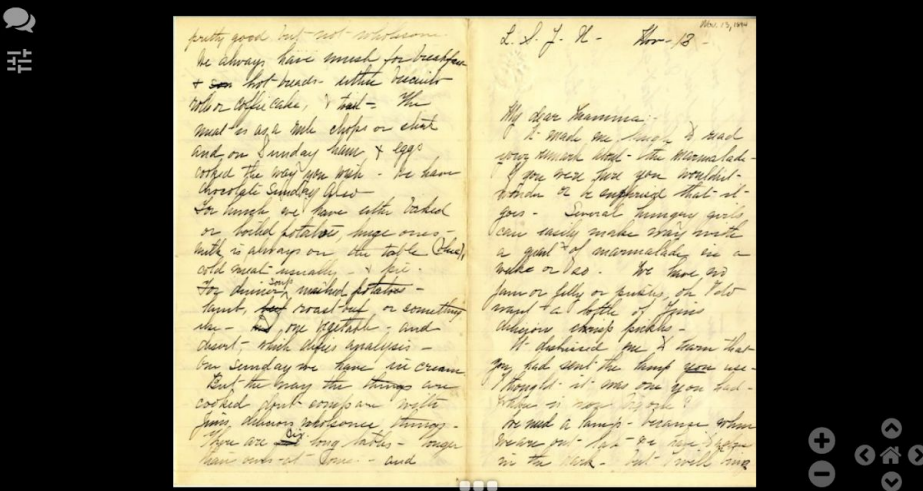 pretty good but not wholesome
We always have mush for breakfast
& hot breads - either biscuits
rolls or coffee cake, & fruit - The
meat is as a rule chops or steak
and on Sunday ham & eggs
cooked the way you wish - We have
chocolate Sunday also
For lunch we have either baked
or boiled potatoes, huge ones -
milk is always on the table (blue),
cold meat usually - & pie.
For dinner soup, mashed potatoes -
lamb, roast beef, or something
else - one vegetable, and
desert - which defies analysis -
On Sunday we have ice cream
But the way the things are
cooked dont compare with
Jims, delicious wholesome things -
There are six long tables - longer
than ours at home - and
Nov. 13, 1894
L. S. J. U - Nov - 13 -
My dear Mamma: -
It made me laugh to read
your remark about the marmalade -
If you were here you wouldn't
wonder or be surprised that it
goes - Several hungry girls
can easily make way with
a quart of marmalade in a
week or so. We have no
jam or jelly or pickles, oh I do
want a bottle of Jims
delicious crisp pickles -
It distressed me to learn that
you had sent the lamp you use -
I thought it was one you had -
We need a lamp - because when
we are out
in the dark - but I will